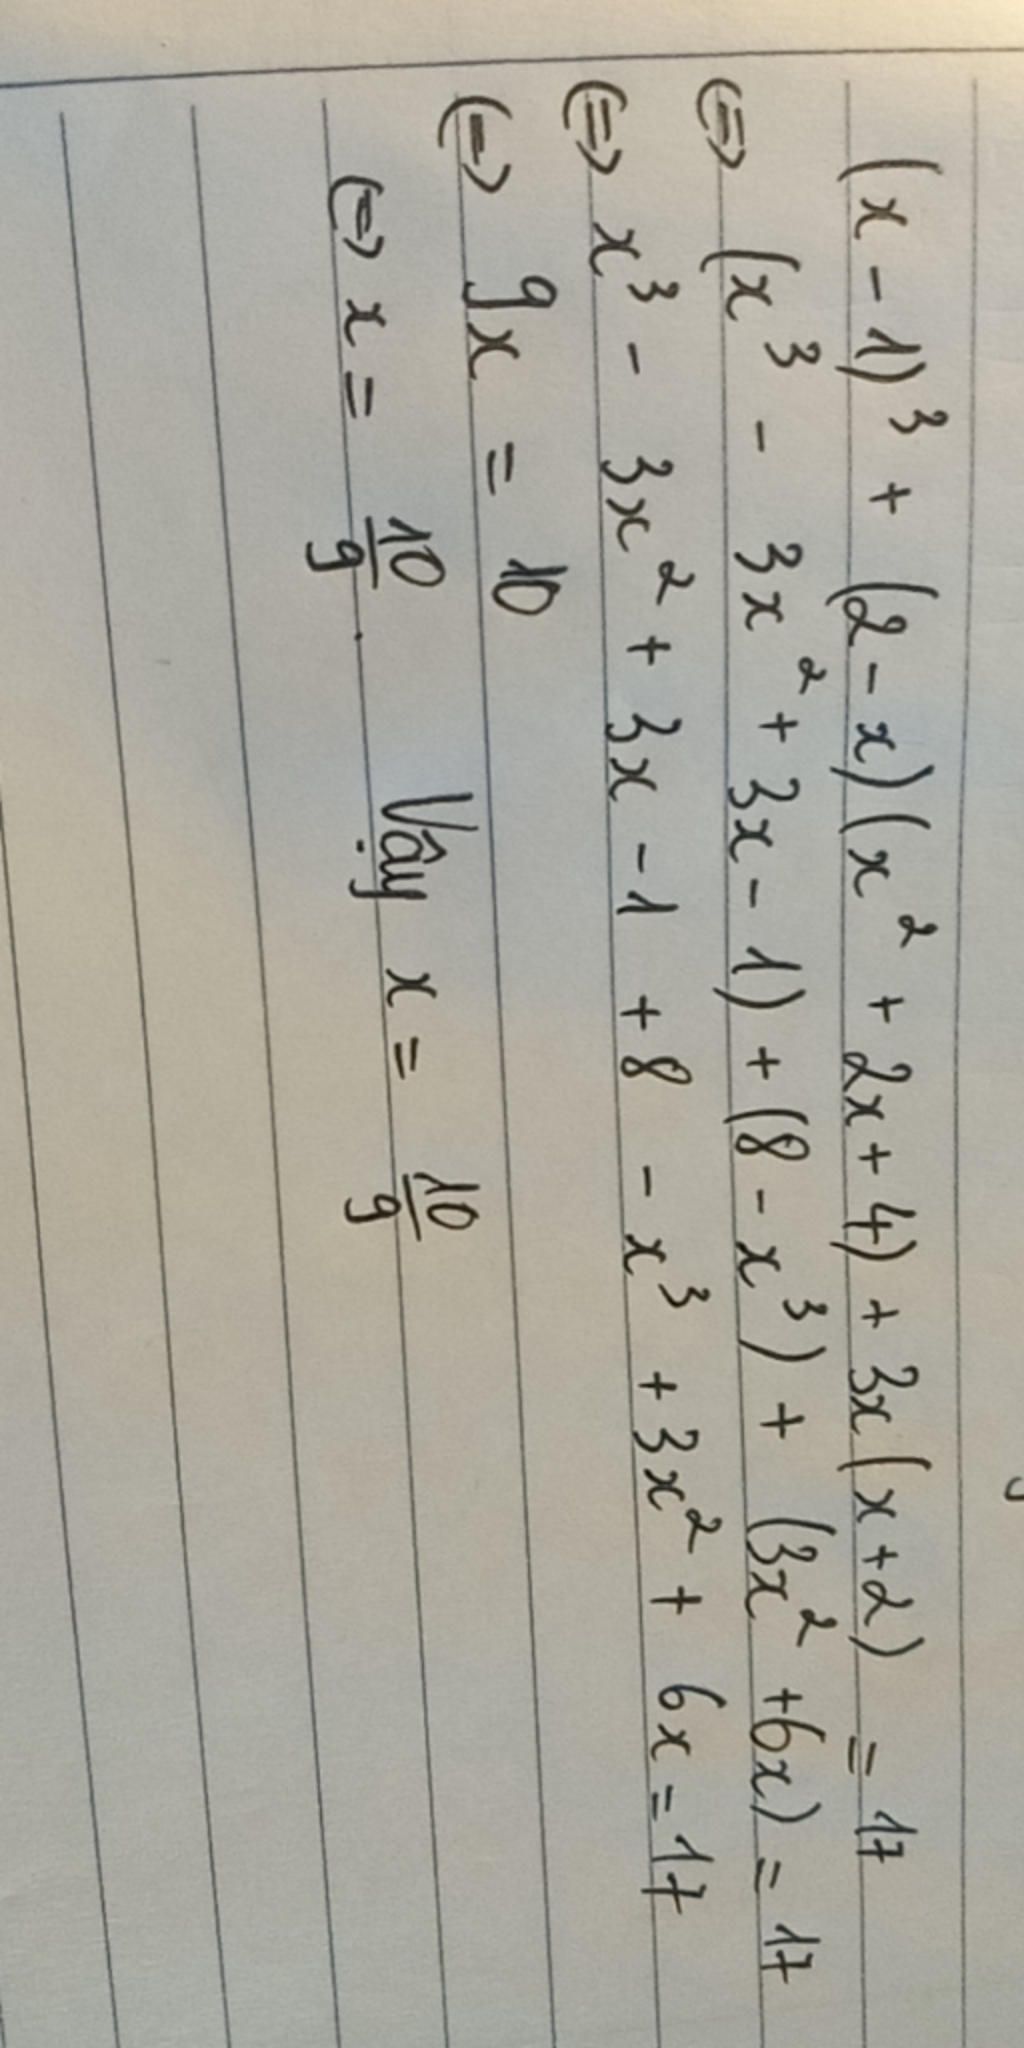 (x - 1)³ + (2 - x)(x² + 2x + 4) + 3x(x + 2) = 17
(=) (x³ - 3x² + 3x - 1) + (8 - x³) + (3x² + 6x) = 17
(=) x³ - 3x² + 3x - 1 + 8 - x³ + 3x² + 6x = 17
(=) 9x = 10
(=) x = 10/9 . Vậy x = 10/9